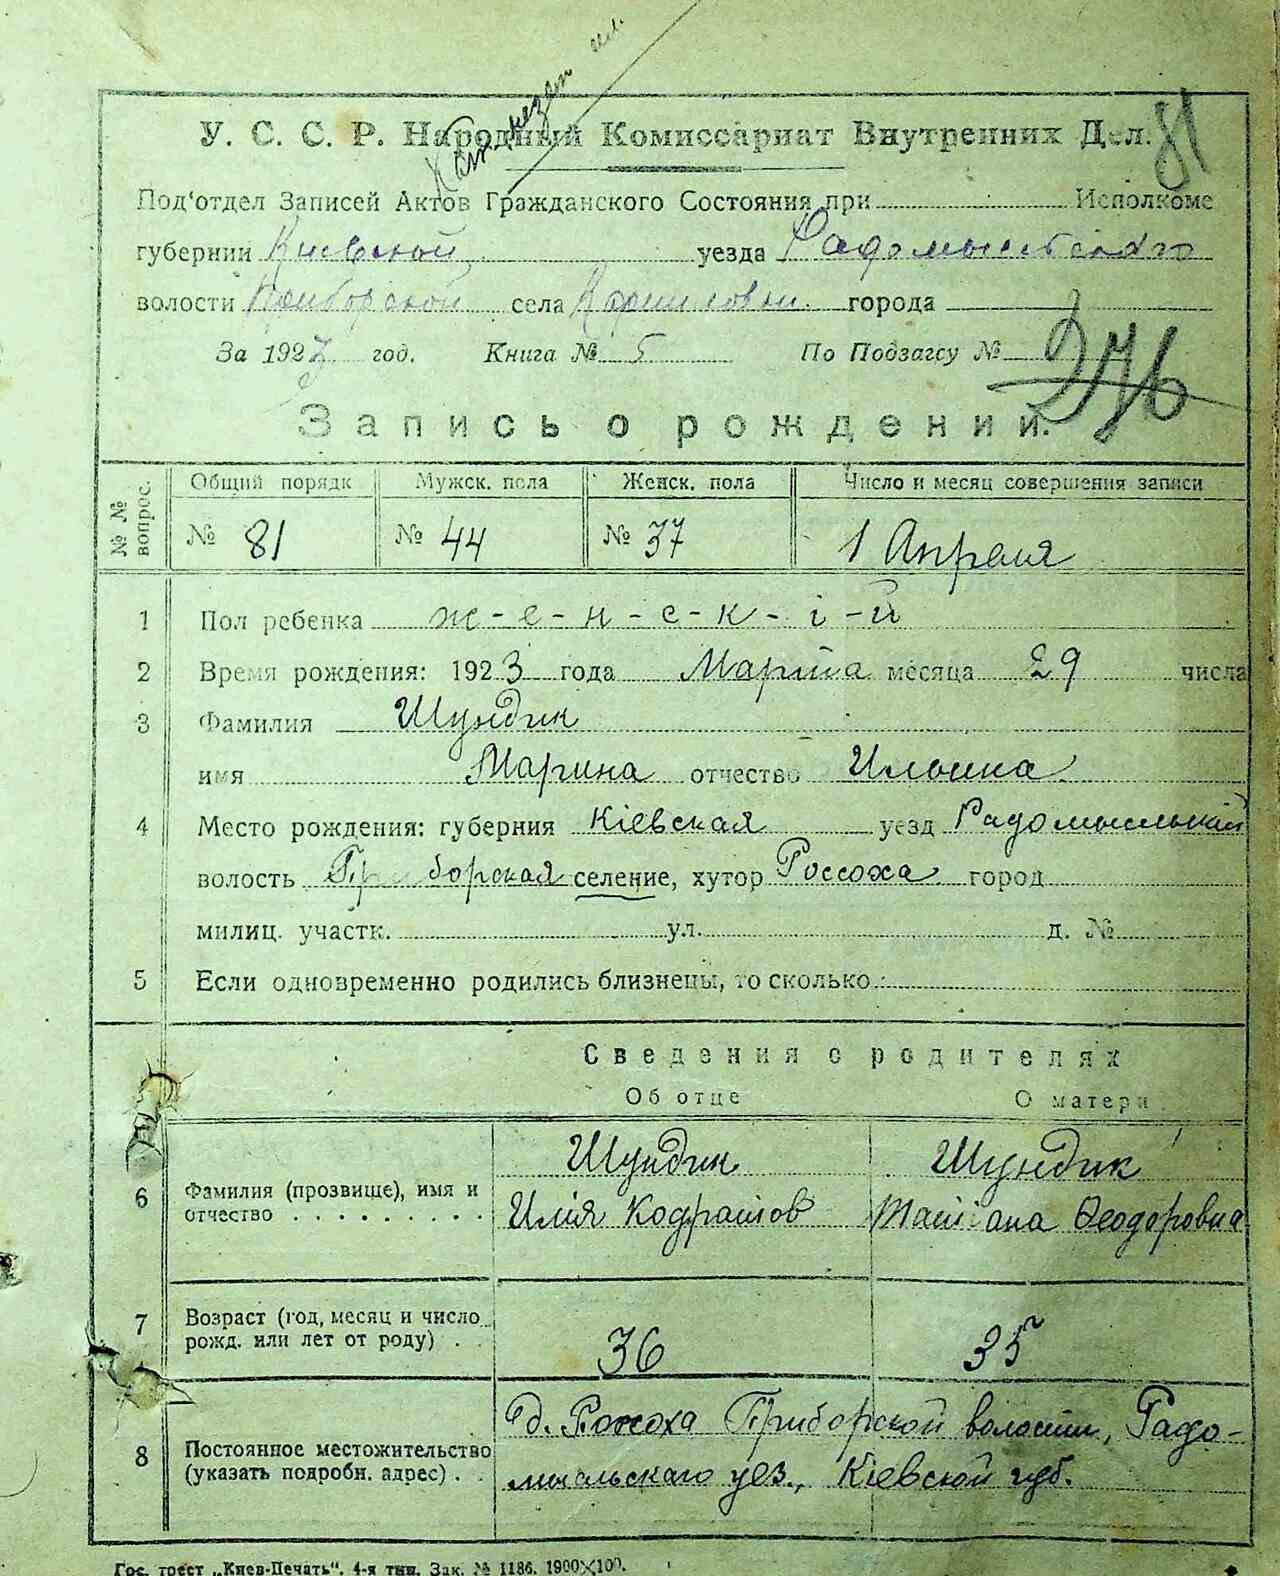 81
У. С. С. Р. Народный Комиссариат Внутренних Дел.
Под'отдел Записей Актов Гражданского Состояния при Исполкоме
губернии Киевской уезда Радомысльского
волости Приборской села Карпиловки города
За 1923 год. Книга № 5 По Подзагсу № 276
Запись о рождении.
№ № вопрос. Общий порядк Мужск. пола Женск. пола Число и месяц совершения записи
№ 81 № 44 № 37 1 Апреля
1 Пол ребенка ж-е-н-с-к-і-й
2 Время рождения: 1923 года Марта месяца 29 числа
3 Фамилия Шундик
имя Марина отчество Ильина
4 Место рождения: губерния Кіевская уезд Радомысльский
волость Приборская селение, хутор Россоха город
милиц. участк. ул. д. №
5 Если одновременно родились близнецы, то сколько:
Сведения о родителях
Об отце О матери
Шундик Шундик
6 Фамилия (прозвище), имя и
отчество . . . . . . . . . Илія Кодратов Татіана Феодоровна
7 Возраст (год, месяц и число
рожд. или лет от роду) . . 36 35
д. Россоха Приборской волости, Радо-
8 Постоянное местожительство
(указать подробн. адрес) . . мысльскаго уез., Кіевской губ.
Гос. трест „Киев-Печать“. 4-я тип. Зак. № 1186. 1900×100.